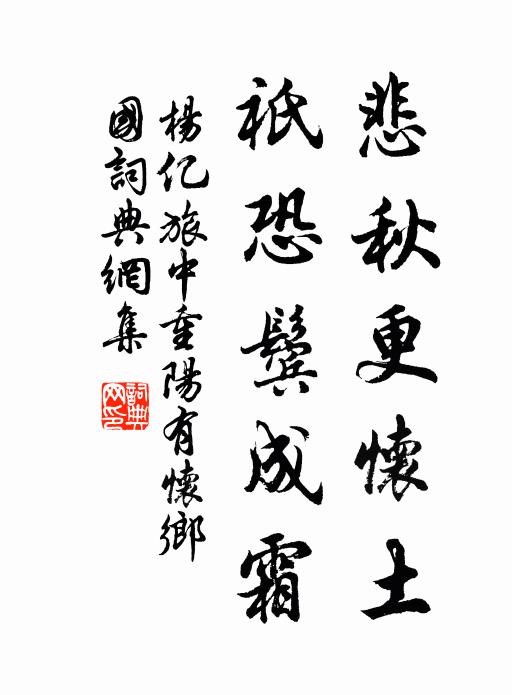 悲秋更懷土
祇恐鬢成霜
楊億旅中重陽有懷鄉
國詞典網集
詞典网印